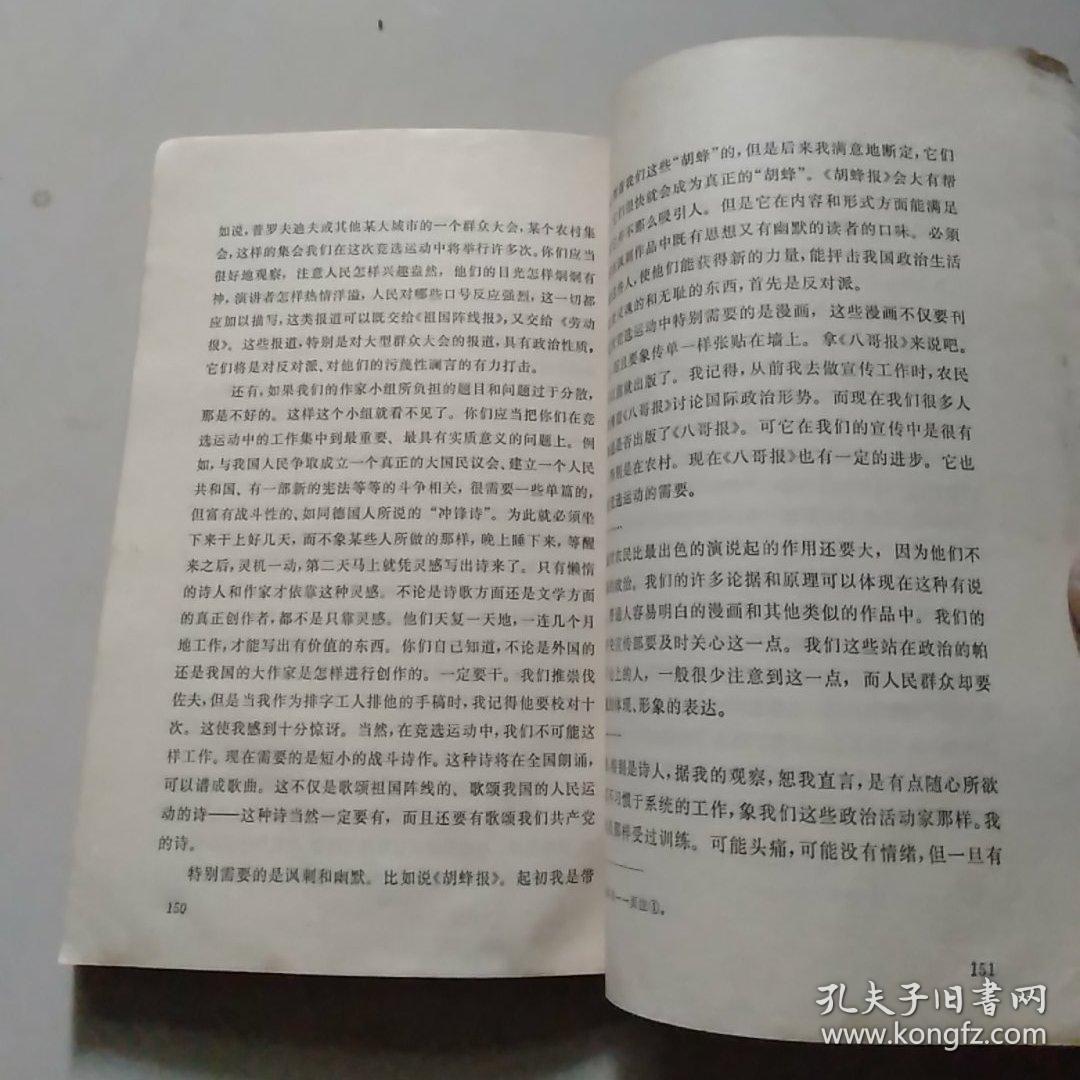 如说，普罗夫迪夫或其他某大城市的一个群众大会，某个农村集
会，这样的集会我们在这次竞选运动中将举行许多次。你们应当
很好地观察，注意人民怎样兴趣盎然，他们的目光怎样炯炯有
神，演讲者怎样热情洋溢，人民对哪些口号反应强烈，这一切都
应加以描写，这类报道可以既交给《祖国阵线报》，又交给《劳动
报》。这些报道，特别是对大型群众大会的报道，具有政治性质，
它们将是对反对派、对他们的污蔑性谰言的有力打击。
还有，如果我们的作家小组所负担的题目和问题过于分散，
那是不好的。这样这个小组就看不见了。你们应当把你们在竞
选运动中的工作集中到最重要、最具有实质意义的问题上。例
如，与我国人民争取成立一个真正的大国民议会、建立一个人民
共和国、有一部新的宪法等等的斗争相关，很需要一些单篇的，
但富有战斗性的、如同德国人所说的“冲锋诗”。为此就必须坐
下来干上好几天，而不象某些人所做的那样，晚上睡下来，等醒
来之后，灵机一动，第二天马上就凭灵感写出诗来了。只有懒惰
的诗人和作家才依靠这种灵感。不论是诗歌方面还是文学方面
的真正创作者，都不是只靠灵感。他们天复一天地，一连几个月
地工作，才能写出有价值的东西。你们自己知道，不论是外国的
还是我国的大作家是怎样进行创作的。一定要干。我们推崇伐
佐夫，但是当我作为排字工人排他的手稿时，我记得他要校对十
次。这使我感到十分惊讶。当然，在竞选运动中，我们不可能这
样工作。现在需要的是短小的战斗诗作。这种诗将在全国朗诵，
可以谱成歌曲。这不仅是歌颂祖国阵线的、歌颂我国的人民运
动的诗——这种诗当然一定要有，而且还要有歌颂我们共产党
的诗。
特别需要的是讽刺和幽默。比如说《胡蜂报》。起初我是带
150
我们这些“胡蜂”的，但是后来我满意地断定，它们
很快就会成为真正的“胡蜂”。《胡蜂报》会大有帮
不那么吸引人。但是它在内容和形式方面能满足
讽刺作品中既有思想又有幽默的读者的口味。必须
人，使他们能获得新的力量，能抨击我国政治生活
灵魂的和无耻的东西，首先是反对派。
竞选运动中特别需要的是漫画，这些漫画不仅要刊
且要象传单一样张贴在墙上。拿《八哥报》来说吧。
就出版了。我记得，从前我去做宣传工作时，农民
《八哥报》讨论国际政治形势。而现在我们很多人
是否出版了《八哥报》。可它在我们的宣传中是很有
别是在农村。现在《八哥报》也有一定的进步。它也
竞选运动的需要。
农民比最出色的演说起的作用还要大，因为他们不
政治。我们的许多论据和原理可以体现在这种有说
普通人容易明白的漫画和其他类似的作品中。我们的
宣传部要及时关心这一点。我们这些站在政治的帕
上的人，一般很少注意到这一点，而人民群众却要
体现、形象的表达。
特别是诗人，据我的观察，恕我直言，是有点随心所欲
不习惯于系统的工作，象我们这些政治活动家那样。我
那样受过训练。可能头痛，可能没有情绪，但一旦有
页注①。
151
孔夫子旧书网
www.kongfz.com